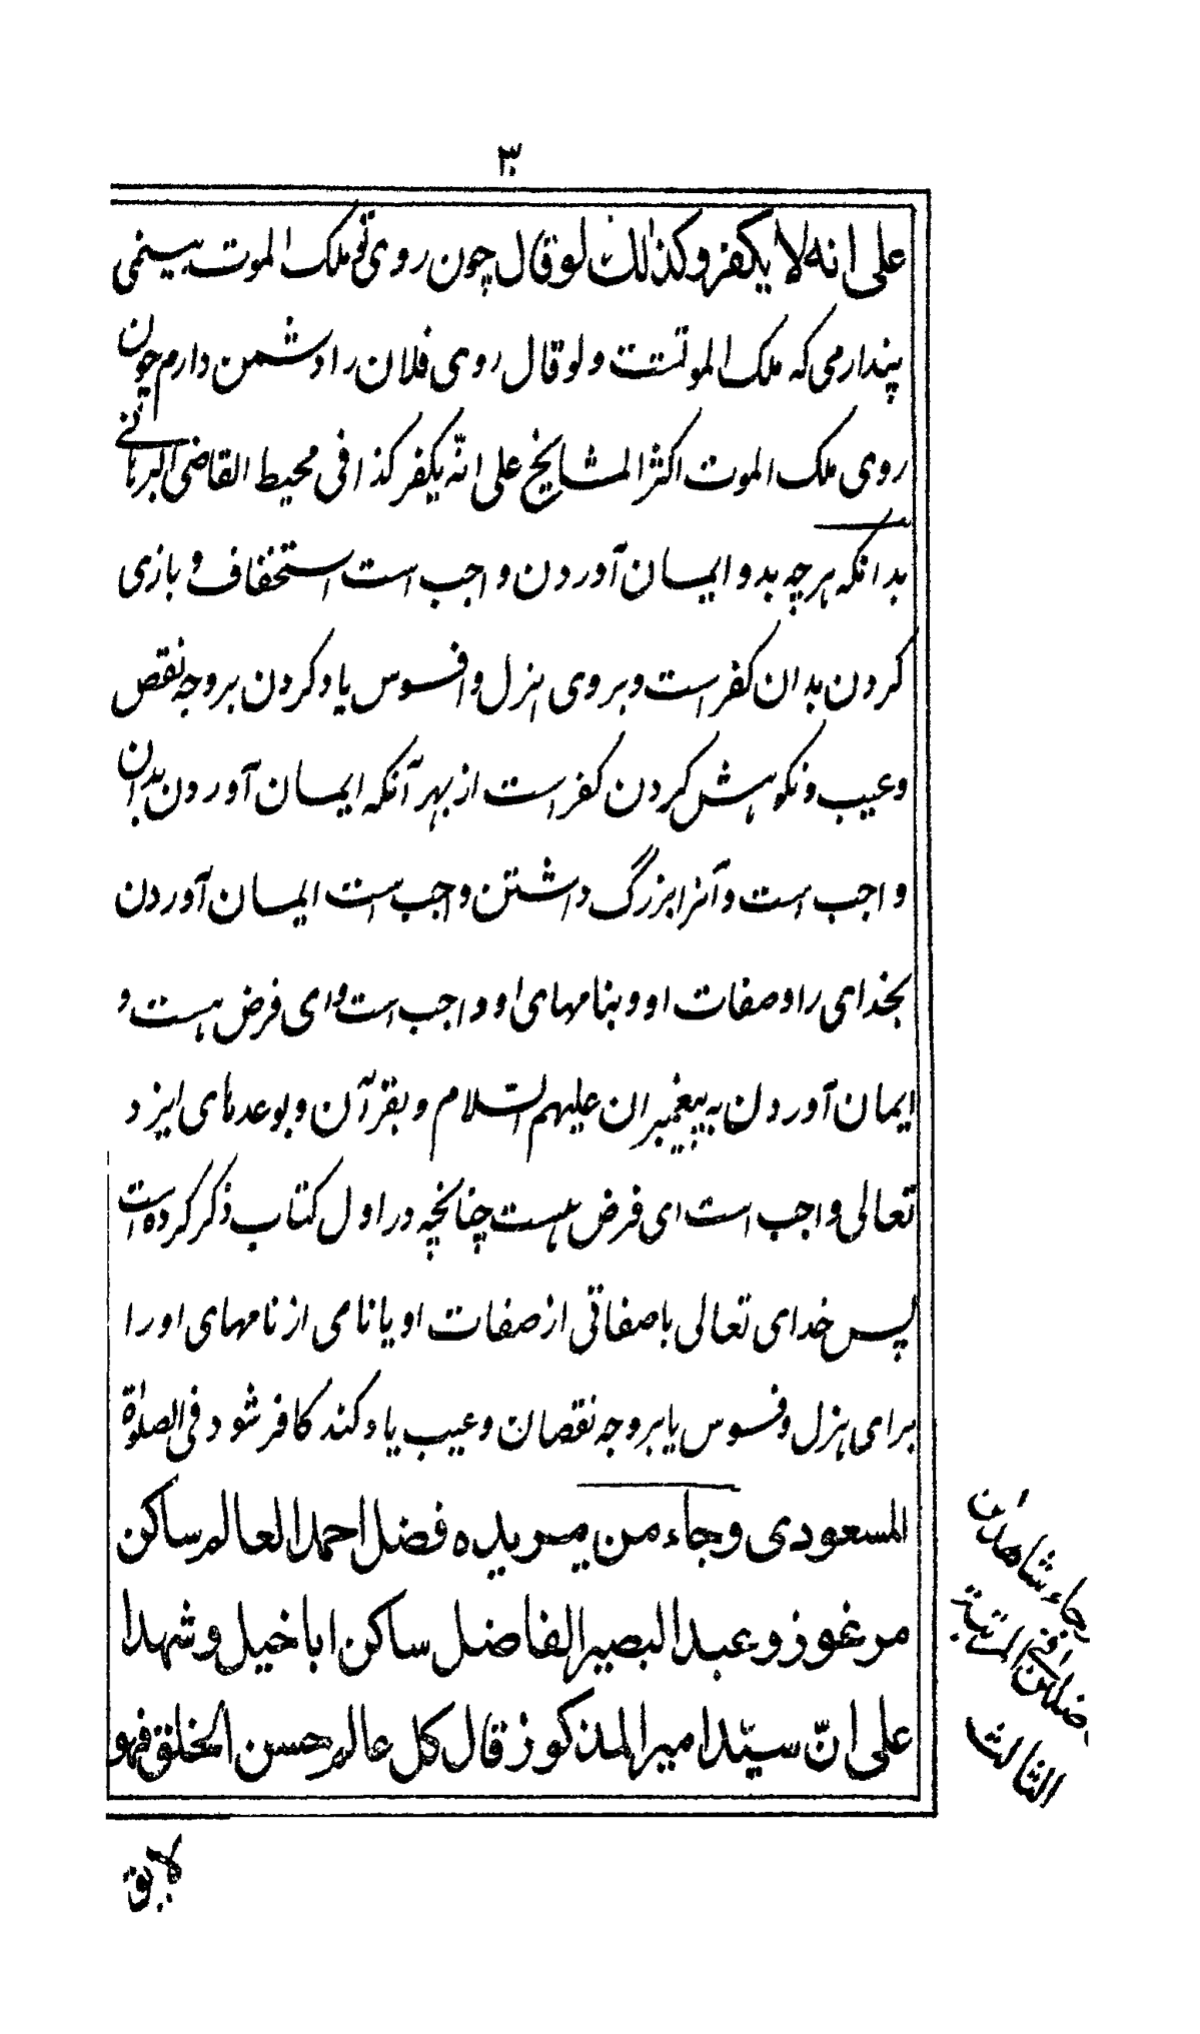 ۳۰
علی انه لا یکفر وکذلک لو قال چون روی تو ملک الموت بینمی
پندارمی که ملک الموتست ولو قال روی فلان را دشمن دارم چون
روی ملک الموت اکثر المشایخ علی انّه یکفر کذا فی محیط القاضی البرهانی
بدانکه هرچه بدو ایمان آوردن واجب است استخفاف و بازی
کردن بدان کفر است و بروی هزل و افسوس یاد کردن بر وجه نقص
و عیب و نکوهش کردن کفر است از بهر آنکه ایمان آوردن بدان
واجب است و آنرا بزرگ داشتن واجب است ایمان آوردن
بخدای را و صفات او و بنامهای او واجب است و ای فرض هست و
ایمان آوردن به پیغمبران علیهم السّلام و بقرآن و بوعدهای ایزد
تعالی واجب است ای فرض هست چنانچه در اول کتاب ذکر کرده است
پس خدای تعالی با صفاتی از صفات او یا نامی از نامهای او را
برای هزل و فسوس یا بر وجه نقصان و عیب یاد کند کافر شود فی الصلوٰة
المسعودی وجاء من یریده فضل احمد العالم ساکن
مرغوز وعبد البصیر الفاضل ساکن اباخیل وشهدا
علی انّ سیّد امیر المذکور قال کل عالم حسن الخلق فهو
لایق
وجاء شاهدان
فاضلان فی المرتبة
الثالث